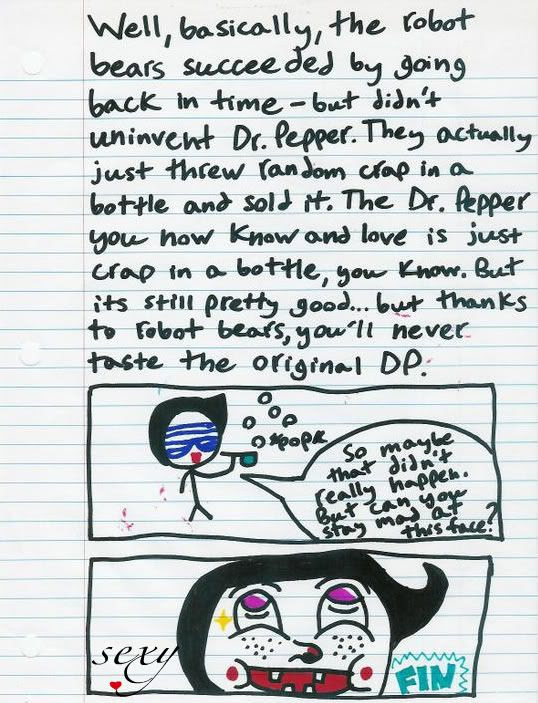 Well, basically, the robot
bears succeeded by going
back in time - but didn't
uninvent Dr. Pepper. They actually
just threw random crap in a
bottle and sold it. The Dr. Pepper
you now know and love is just
crap in a bottle, you know. But
its still pretty good... but thanks
to robot bears, you'll never
taste the original DP.
*pop*
So maybe
that didn't
really happen.
But can you
stay mad at
this face?
sexy
FIN